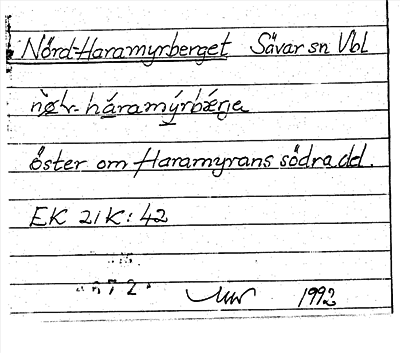 Nörd-Haramyrberget Sävar sn Vbl
nø̀ʟ- hàramýrbærja
öster om Haramyrans södra del.
EK 21K: 42
1992